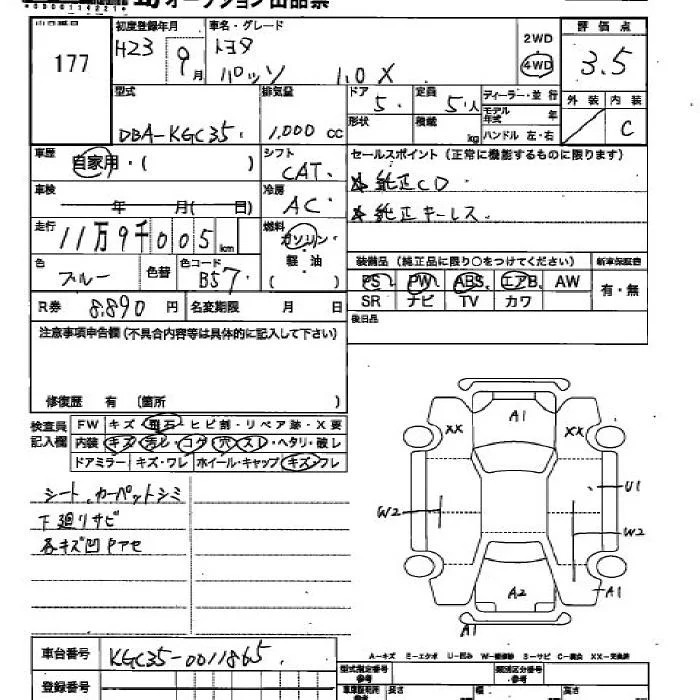 オークション出品票
出品番号 初度登録年月 車名・グレード 評価点
177 H23 9月 トヨタ 2WD 3.5
パッソ 1.0 X 4WD
外装 内装
型式 排気量 ドア 定員 ディーラー・並行
5. 5人 モデル年式 年 C
DBA-KGC35. 1,000 cc 形状 積載 kg ハンドル 左・右
車歴 シフト セールスポイント(正常に機能するものに限ります)
自家用・( ) CAT.
車検 冷房 純正CD
年 月( 日) AC 純正キーレス.
走行 燃料
11万9千005km ガソリン
色 色替 色コード 軽油 装備品(純正品に限り○をつけてください) 新車保証書
ブルー B57 ( ) PS PW ABS エアB AW 有・無
R券 8,890円 名変期限 月 日 SR ナビ TV カワ
注意事項申告欄(不具合内容等は具体的に記入して下さい) 後日品
修復歴 有(箇所 )
検査員 FW キズ・飛石・ヒビ割・リペア跡・X要
記入欄 内装 キズ・汚レ・コゲ・穴・スレ・ヘタリ・破レ
ドアミラー キズ・ワレ ホイール・キャップ キズ・ワレ
シート.カーペットシミ
下廻りサビ
各キズ凹Pアセ
A1
XX XX
U1
W2 W2
A2 A1
A1
A-キズ E-エクボ U-凹み W-補修跡 S-サビ C-腐食 XX-交換済
車台番号 KGC35-0011865. 型式指定番号 類別区分番号
参考 参考
登録番号 参考 長さ 幅 高さ